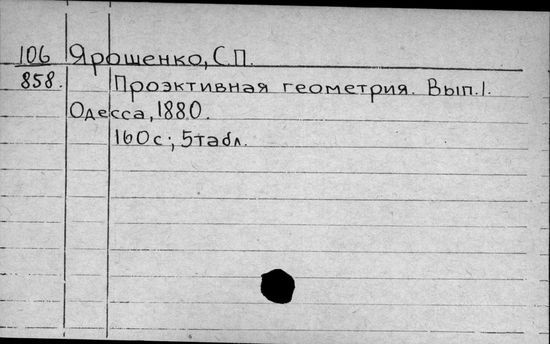 106 Ярошенко, С.П.
858. Проэктивная геометрия. Вып.1.
Одесса, 1880.
160 с; 5 табл.